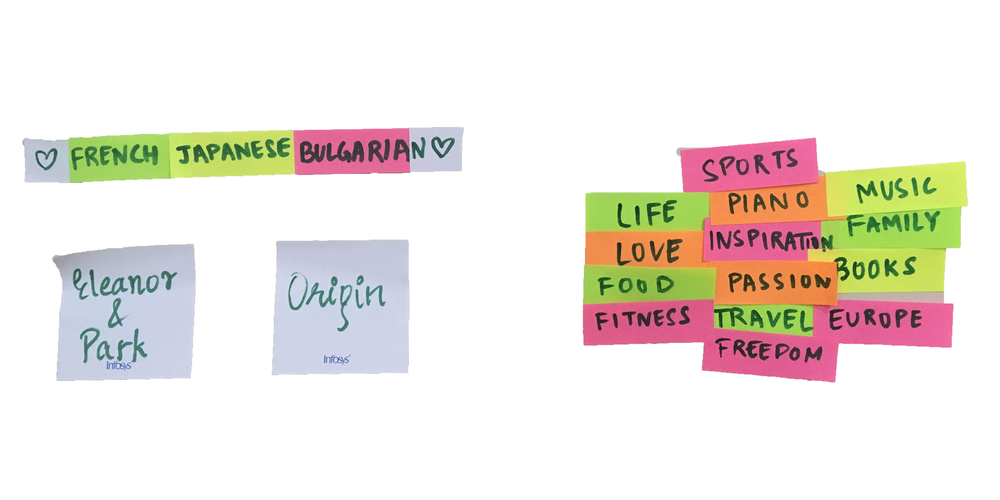 ♡ FRENCH JAPANESE BULGARIAN ♡
Eleanor
&
Park
Infosys
Origin
Infosys
SPORTS
MUSIC
PIANO
LIFE
FAMILY
INSPIRATION
LOVE
BOOKS
PASSION
FOOD
FITNESS
TRAVEL
EUROPE
FREEDOM